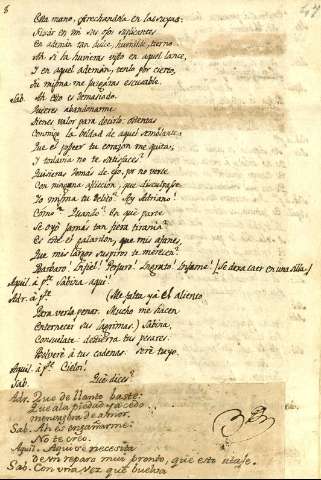 8
Esta mano, estrechandola en las suyas:
Fixár en mi sus ojos suplicantes
En ademán tan dulce, humilde, tierno.
Ah si la hubieras visto en aquel lance,
I en aquel ademán, tenlo por cierto,
Tu misma me juzgáras escusable.
Sab. Ah esto es demasiado.
Quieres abandonarme
Tienes valor para decirlo: ostentas
Conmigo la beldad de aquel semblante:
Que el poseer tu corazon me quita;
I todavia no te satisfaces?
Quisieras demás de eso, por no verte
Con ninguna afliccion, que disculpase
Yo misma tu delito? Ay Adriano!
Cómo? Quando? En qué parte
Se oyó jamás tan fiera tirania?
Es este el galardon, que mis afanes,
Que mis largos suspiros te merecen?
Barbaro! Infiel! Perjuro! Ingrato! Infame! [Se dexa caer en una silla.]
Aquil. á pte. Sabina aqui.
Adr. á pte. (Me falta yá el aliento
Para verla penar. Mucho me hacen
Enternecer sus lagrimas.) Sabina,
Consuelate: destierra tus pesares.
Volveré á tus cadenas: seré tuyo.
Aquil. á pte. Cielos!
Sab. Qué dices?
Adr. Que de llanto baste:
Que a la piedad ya cedo
me
de amor.
Sab. Ah es engañarme!
No te creo.
Aquil. Aqui se necesita
de un reparo mui pronto, que esto ataje.
Sab. Con una vez que buelva